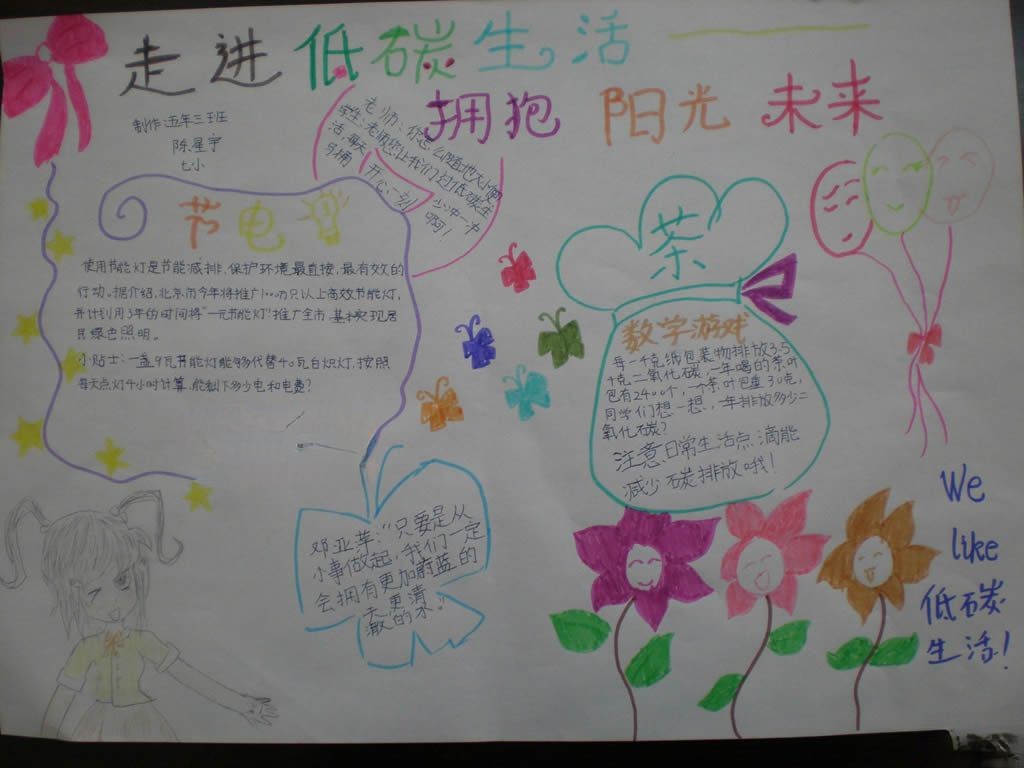 走进低碳生活
拥抱 阳光 未来
制作:五年三班
陈星宇
七小
老师:你怎么随地大小便
学生:老师您让我们过低碳生
活 每天 少冲一冲
马桶 啊!
开心一刻
节电
使用节能灯是节能减排,保护环境最直接,最有效的
行动。据介绍,北京市今年将推广1000万只以上高效节能灯,
并计划用3年的时间将“一元节能灯”推广全市,基本实现居
民绿色照明。
小贴士:一盏9瓦节能灯能够代替40瓦白炽灯,按照
每天点灯4小时计算,能剩下多少电和电费?
茶
数字游戏
每一千克纸包装物排放3.5
千克二氧化碳,一年喝的茶叶
包有2400个,一个茶叶包重30克,
同学们想一想,一年排放多少二
氧化碳?
注意日常生活点滴能
减少碳排放哦!
邓亚萍:“只要是从
小事做起,我们一定
会拥有更加蔚蓝的
天,更清
澈的水。
We
like
低碳
生活!